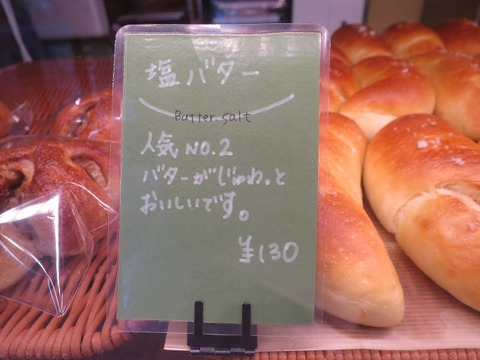 塩バター
Butter salt
人気NO.2
バターがじゅわっと
おいしいです。
¥130